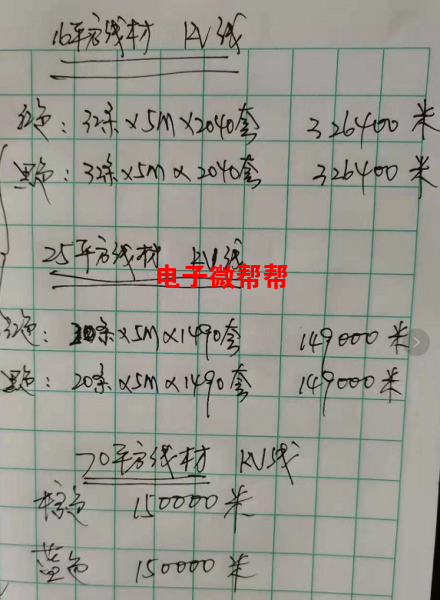 16平方线材 KV线
红色：32条×5M×2040套 326400米
黑色：32条×5M×2040套 326400米
25平方线材 KV线
电子微帮帮
红色：20条×5M×1490套 149000米
黑色：20条×5M×1490套 149000米
20平方线材 KV线
棕色 150000米
蓝色 150000米